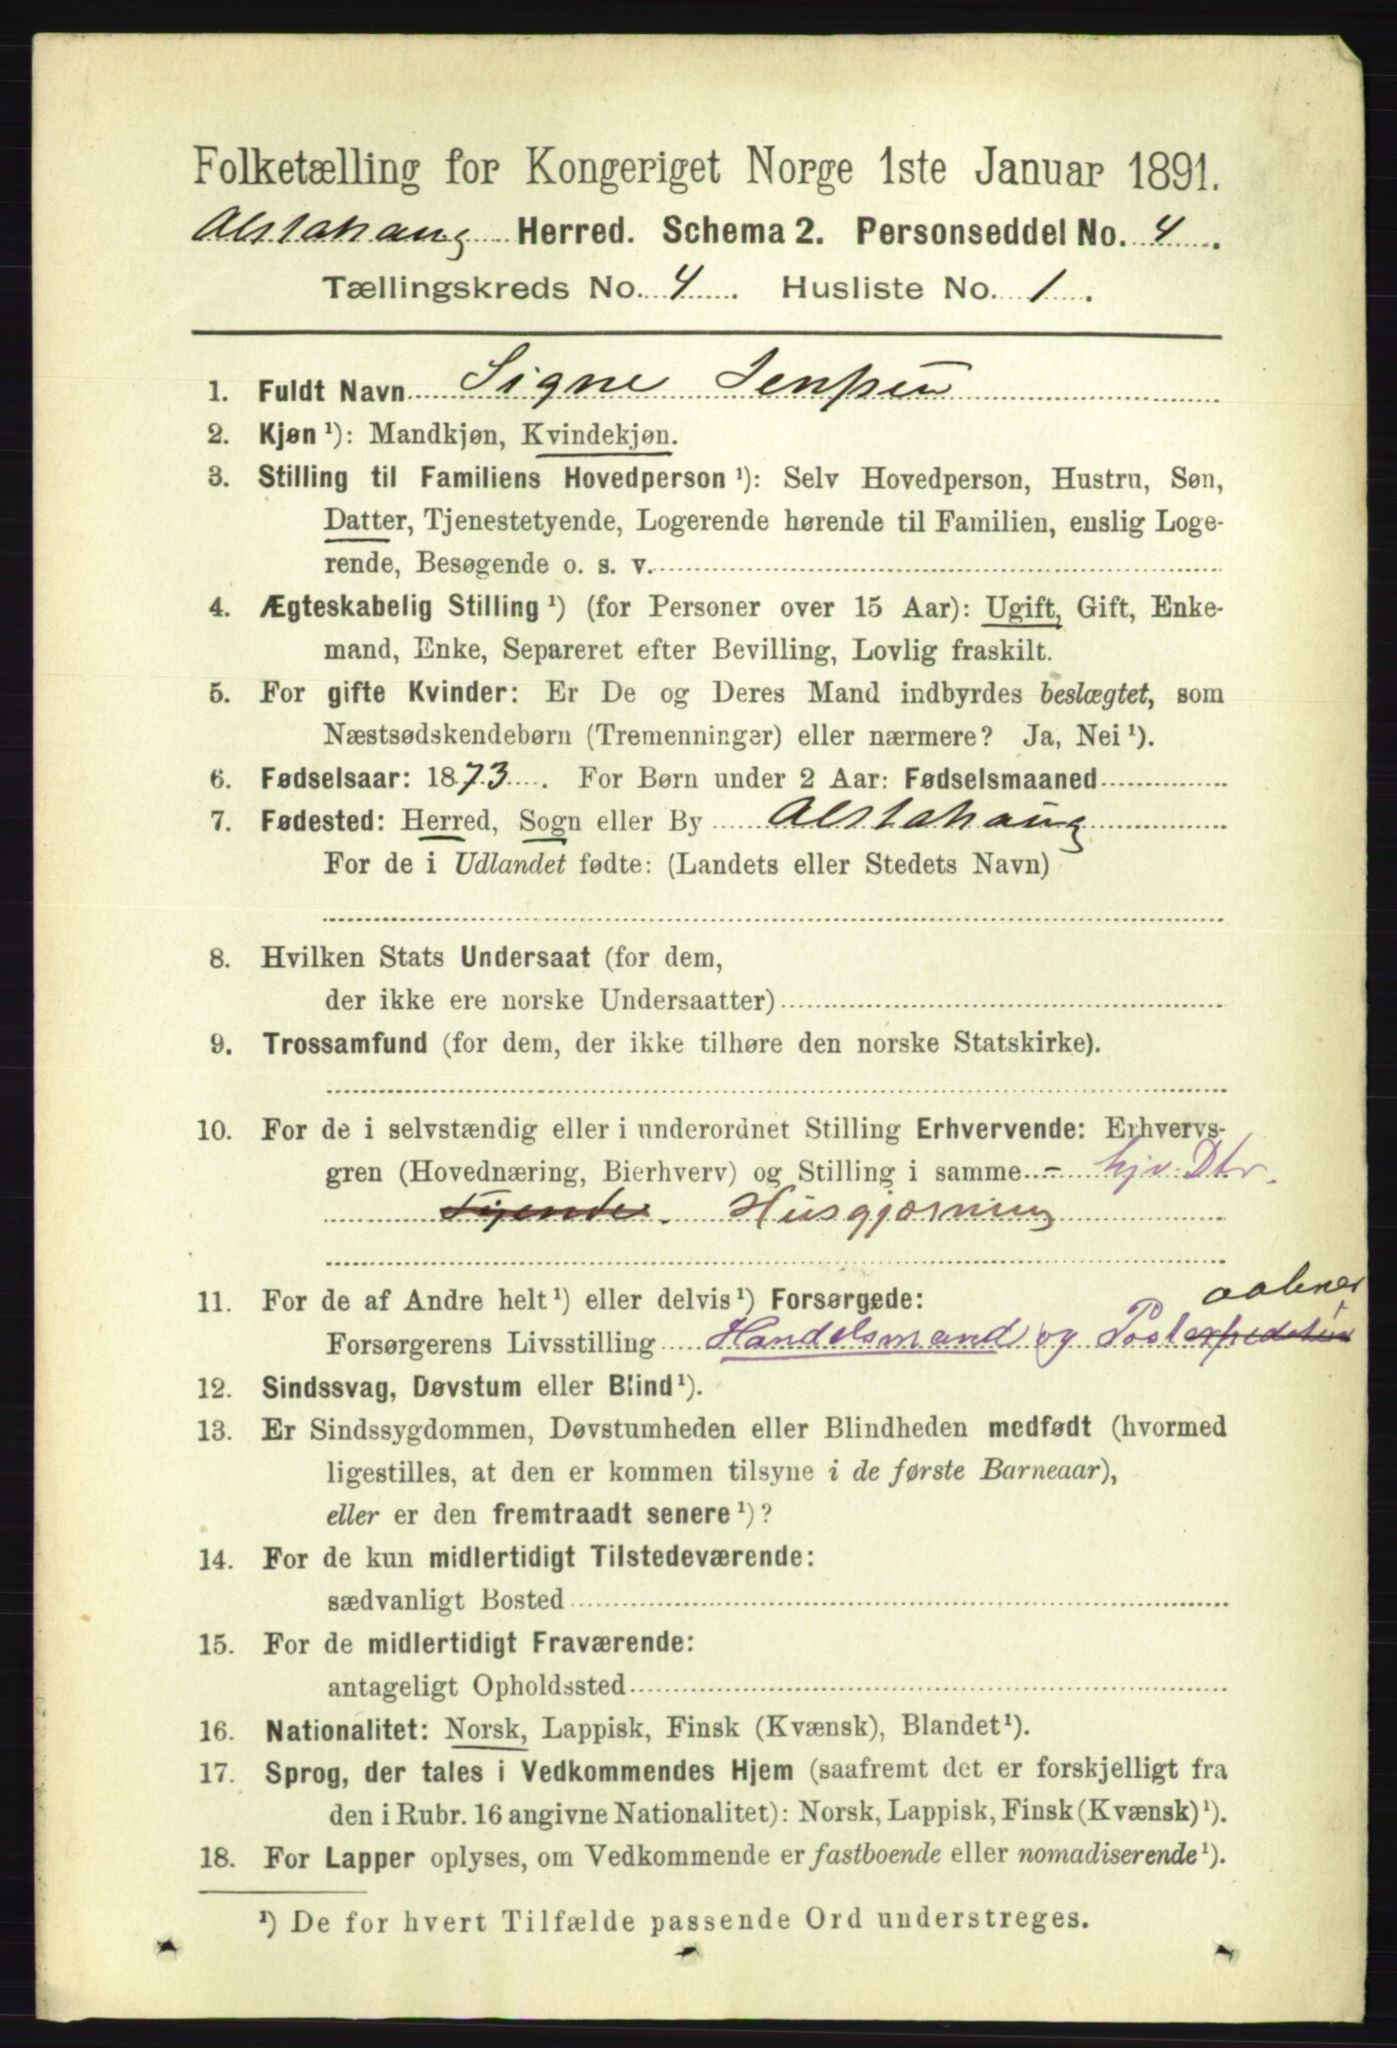 Folketælling for Kongeriget Norge 1ste Januar 1891.
Alstahaug Herred. Schema 2. Personseddel No. 4.
Tællingskreds No. 4. Husliste No. 1.
1. Fuldt Navn Signe Jensen
2. Kjøn ¹): Mandkjøn, Kvindekjøn.
3. Stilling til Familiens Hovedperson ¹): Selv Hovedperson, Hustru, Søn,
Datter, Tjenestetyende, Logerende hørende til Familien, enslig Loge-
rende, Besøgende o. s. v.
4. Ægteskabelig Stilling ¹) (for Personer over 15 Aar): Ugift, Gift, Enke-
mand, Enke, Separeret efter Bevilling, Lovlig fraskilt.
5. For gifte Kvinder: Er De og Deres Mand indbyrdes beslægtet, som
Næstsødskendebørn (Tremenninger) eller nærmere? Ja, Nei ¹).
6. Fødselsaar: 1873. For Børn under 2 Aar: Fødselsmaaned
7. Fødested: Herred, Sogn eller By Alstahaug
For de i Udlandet fødte: (Landets eller Stedets Navn)
8. Hvilken Stats Undersaat (for dem,
der ikke ere norske Undersaatter)
9. Trossamfund (for dem, der ikke tilhøre den norske Statskirke).
10. For de i selvstændig eller i underordnet Stilling Erhvervende: Erhvervs-
gren (Hovednæring, Bierhverv) og Stilling i samme - hjv. Dtr.
Tyende. Husgjerning
11. For de af Andre helt ¹) eller delvis ¹) Forsørgede: aabner
Forsørgerens Livsstilling Handelsmand og Postexpeditør
12. Sindssvag, Døvstum eller Blind ¹).
13. Er Sindssygdommen, Døvstumheden eller Blindheden medfødt (hvormed
ligestilles, at den er kommen tilsyne i de første Barneaar),
eller er den fremtraadt senere ¹)?
14. For de kun midlertidigt Tilstedeværende:
sædvanligt Bosted
15. For de midlertidigt Fraværende:
antageligt Opholdssted
16. Nationalitet: Norsk, Lappisk, Finsk (Kvænsk), Blandet ¹).
17. Sprog, der tales i Vedkommendes Hjem (saafremt det er forskjelligt fra
den i Rubr. 16 angivne Nationalitet): Norsk, Lappisk, Finsk (Kvænsk) ¹).
18. For Lapper oplyses, om Vedkommende er fastboende eller nomadiserende ¹).
¹) De for hvert Tilfælde passende Ord understreges.